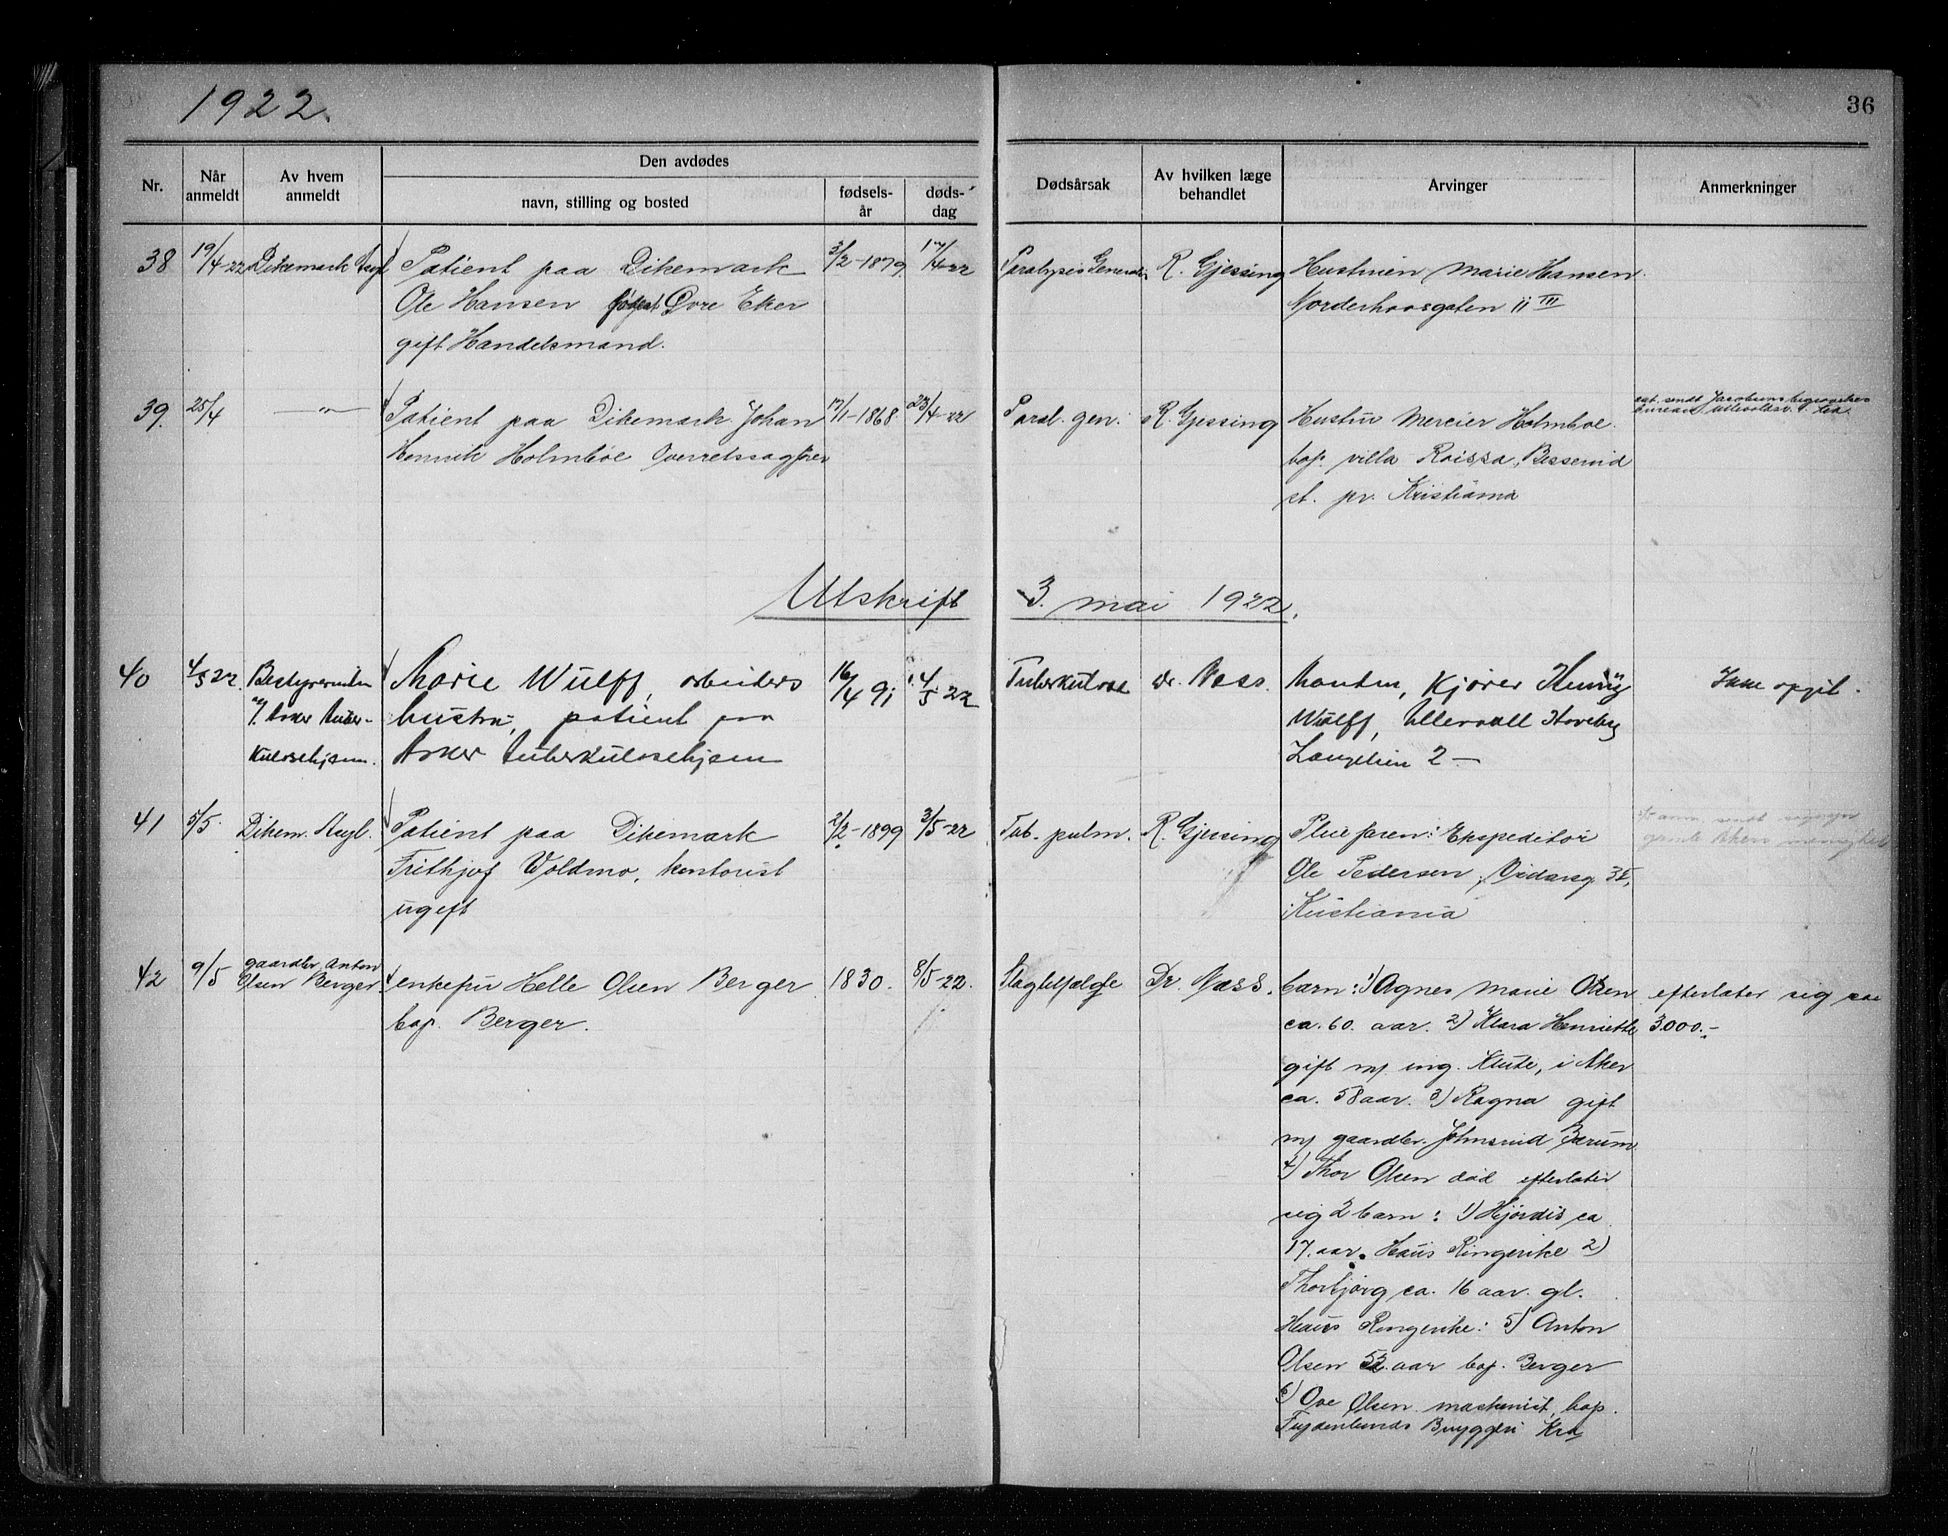 1922.
36
Nr.
Når anmeldt
Av hvem anmeldt
Den avdødes
navn, stilling og bosted
fødsels-år
døds-dag
Dødsårsak
Av hvilken læge behandlet
Arvinger
Anmerkninger
38 19/4-22 Dikemark Asyl Patient paa Dikemark 3/2-1879 17/4-22 Paralysis Generalis R. Gjessing Hustruen Marie Hansen
Ole Hansen født Øvre Eker Norderhovsgaten 11 III
gift Handelsmand.
39. 25/4 —"— Patient paa Dikemark Johan 17/1-1868 23/4-22 Paral. gen. R. Gjessing Hustru Mercier Holmboe
Henrik Holmboe Overretssagfører bop. villa Raissa, Besserud
st. pr. Kristiania
Utskrift 3. mai 1922.
40 4/5 22. Bestyrerinden Marie Wulff, arbeiders 16/4 91 4/5 22 Tuberkulose dr. Næss. Manden, Kjører Henry Ikke opgit.
v/ Asker tuber- hustru, patient paa Wulff, Ullevaall Haveby
kulosehjem. Asker tuberkulosehjem Langelien 2 —
41 5/5. Dikem. Asyl. Patient paa Dikemark 2/2-1899 3/5-22 Tub. pulm. R. Gjessing Pleiefaren: Ekspeditør
Frithjof Voldmo, kontorist Ole Pedersen, Vidarsg.
ugift Kristiania
42 9/5 gaardbr. Anton enkefru Helle Olsen Berger 1830. 8/5-22. Slagtilfælde Dr. Næss. barn: 1) Agnes Marie Olsen efterlater sig ca
Olsen Berger bop. Berger. ca. 60 aar. 2) Klara Henriette 3000.-
gift m/ ing. Klute, i Aker
ca. 58 aar. 3) Ragna gift
m/ gaardbr. Johnsrud Bærum
4) Thor Olsen død efterlater
sig 2 barn: 1) Hjørdis ca
17. aar. Ringerike 2)
Thorbjørg ca. 16 aar. gl.
Ringerike: 5) Anton
Olsen 52 aar bop. Berger
6) Ove Olsen maskinist, bop.
Frydenlunds Bryggeri Kra